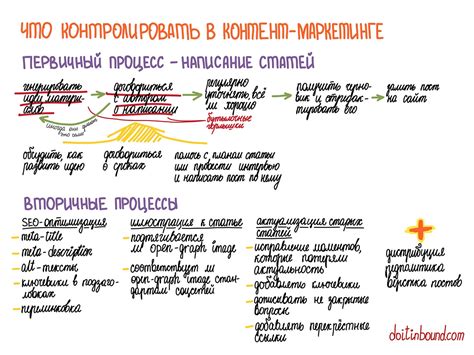 ЧТО КОНТРОЛИРОВАТЬ В КОНТЕНТ-МАРКЕТИНГЕ
ПЕРВИЧНЫЙ ПРОЦЕСС – НАПИСАНИЕ СТАТЕЙ
генерировать
идеи матери-
алов
договориться
с автором
о написании
регулярно
уточнять, всё
ли хорошо
получить черно-
вик и отредак-
тировать его
залить пост
на сайт
бутылочные
горлышки
иногда они
обсудить, как
развить идею
договориться
о сроках
помочь с планом статьи
или провести интервью
и написать пост по нему
ВТОРИЧНЫЕ ПРОЦЕССЫ
SEO-оптимизация
– meta-title
– meta-description
– alt-тексты
– ключевики в подзаго-
ловках
– перелинковка
иллюстрация к статье
– подтягивается
ли open-graph image
– соответствует ли
open-graph image стан-
дартам соцсетей
актуализация старых
статей
– исправление моментов,
которые потеряли
актуальность
– добавлять ключевики
– дописывать не закрытые
вопросы
– добавлять перекрёстные
ссылки
+
дистрибуция
типолитика
вёрстка постов
doitinbound.com